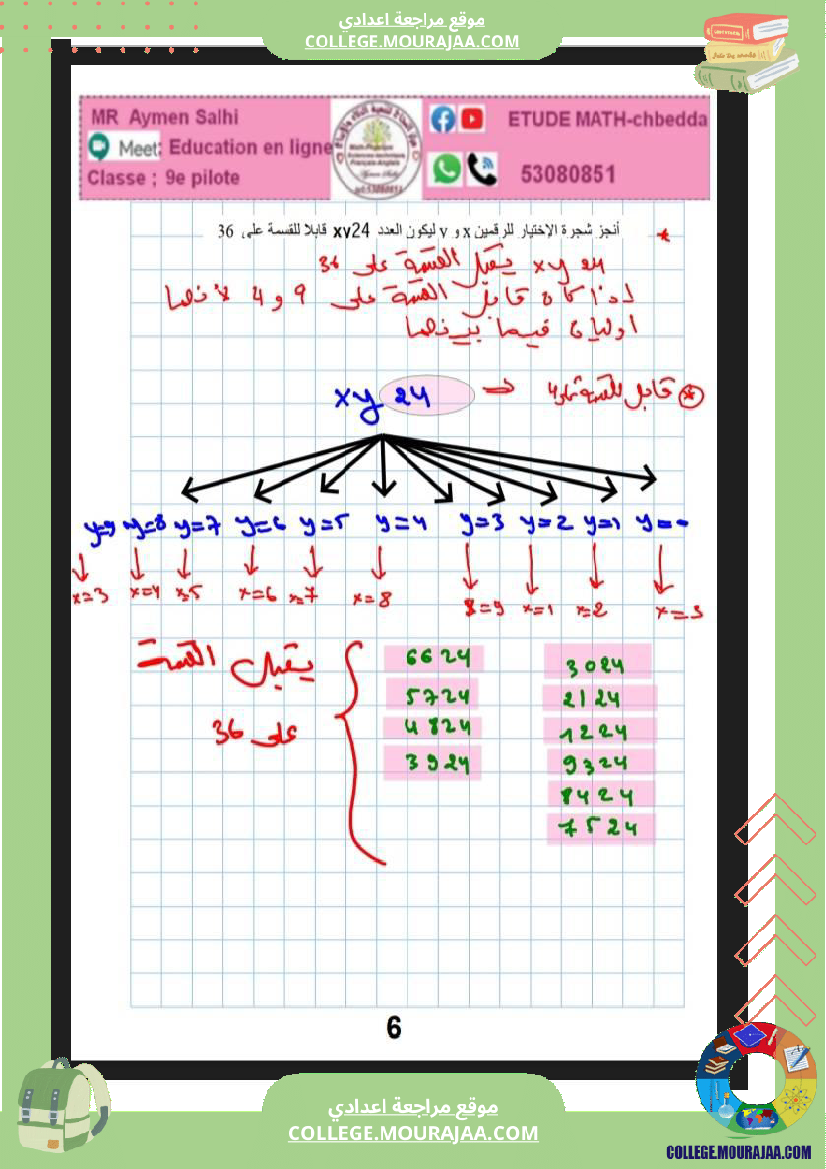 موقع مراجعة اعدادي
COLLEGE.MOURAJAA.COM
MR Aymen Salhi
Meet: Education en ligne
Classe ; 9e pilote
ETUDE MATH-chbedda
53080851
* أنجز شجرة الإختيار للرقمين x و y ليكون العدد xy24 قابلا للقسمة على 36
xy 24 يقبل القسمة على 36
إذا كان قابل القسمة على 9 و 4 لأنهما
أوليان فيما بينهما
xy 24 → قابل للقسمة على 4 *
y=9 y=8 y=7 y=6 y=5 y=4 y=3 y=2 y=1 y=0
x=3 x=4 x=5 x=6 x=7 x=8 8=9 x=1 x=2 x=3
يقبل القسمة
على 36
6624
5724
4824
3924
3024
2124
1224
9324
8424
7524
6
موقع مراجعة اعدادي
COLLEGE.MOURAJAA.COM
COLLEGE.MOURAJAA.COM